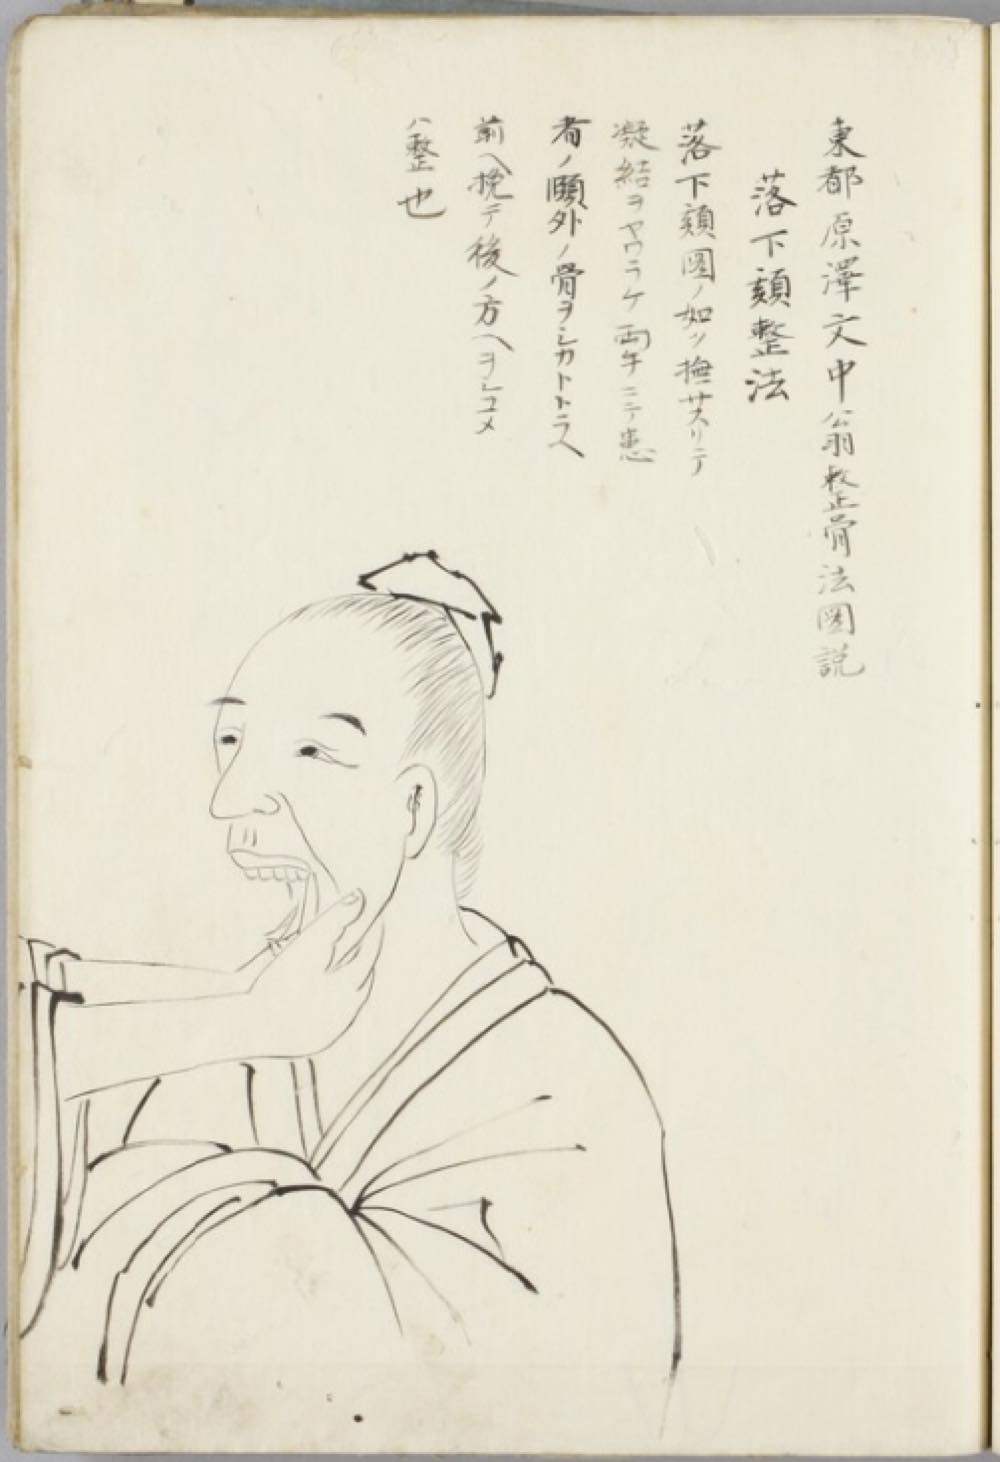 東都原澤文中翁整骨法圖説
落下頦整法
落下頦圖ノ如ツ撫サスリテ
凝結ヲヤワラケ両手ニテ患
者ノ頤外ノ骨ヲシカトトラヘ
前ヘ挽テ後ノ方ヘヲシユメ
ハ整也